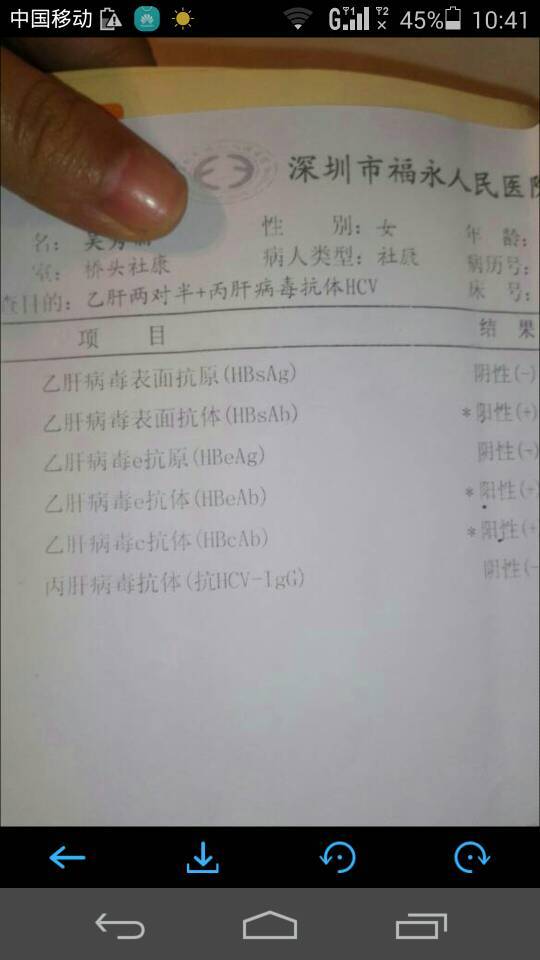 中国移动 G 45% 10:41
深圳市福永人民医院
名： 性 别：女 年 龄：
室：桥头社康 病人类型：社康 病历号：
查目的：乙肝两对半+丙肝病毒抗体HCV 床 号：
项 目 结 果
乙肝病毒表面抗原(HBsAg) 阴性(-)
乙肝病毒表面抗体(HBsAb) *阳性(+)
乙肝病毒e抗原(HBeAg) 阴性(-)
乙肝病毒e抗体(HBeAb) *阳性(+)
乙肝病毒c抗体(HBcAb) *阳性(+
丙肝病毒抗体(抗HCV-IgG) 阴性(-